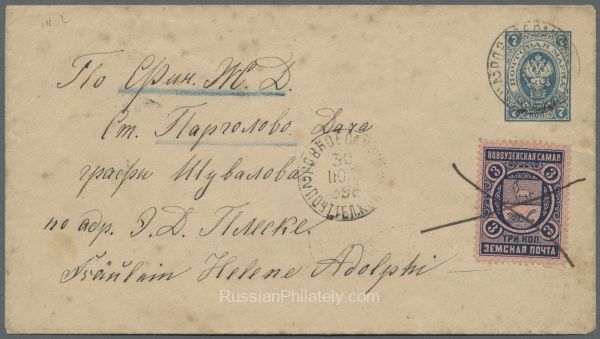 По Фин. Ж. Д.
Ст. Парголово. Дача
графа Шувалова.
по адр. Э. Д. Плеске.
Fräulein Helene Adolphi
ПОЧТОВАЯ МАРКА
7 7
7 7
НОВОУЗЕНСКАЯ САМАР.
3 3
3 3
ТРИ КОП.
ЗЕМСКАЯ ПОЧТА
30
ІЮЛ
RussianPhilately.com